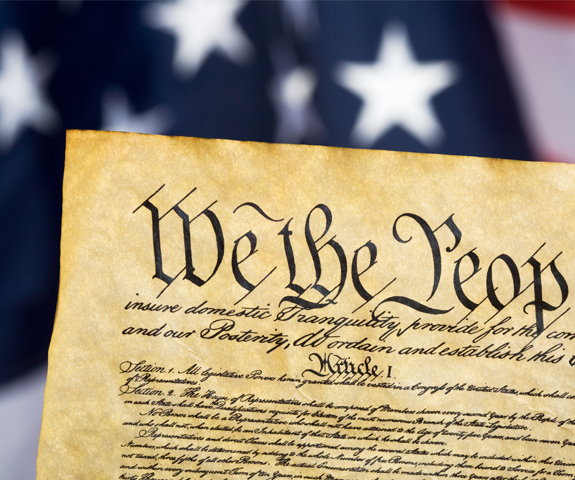 We the Peop
insure domestic Tranquility, provide for the com
and our Posterity, do ordain and establish this
Article I.
Section 1. All legislative Powers herein granted shall be vested in a Congress of the United States, which shall
of Representatives.
Section 2. The House of Representatives shall be composed of Members chosen every second Year by the People of the
in each State shall have the Qualifications requisite for Electors of the most numerous Branch of the State Legislature.
No Person shall be a Representative who shall not have attained to the Age of twenty five Years, and been seven Years
and who shall not, when elected, be an Inhabitant of that State in which he shall be chosen.
Representatives and direct Taxes shall be apportioned among the several States which may be included within this
Numbers, which shall be determined by adding to the whole Number of free Persons, including those bound to Service for a Term
not taxed, three fifths of all other Persons. The actual Enumeration shall be made
and within every subsequent Term of ten Years, in such